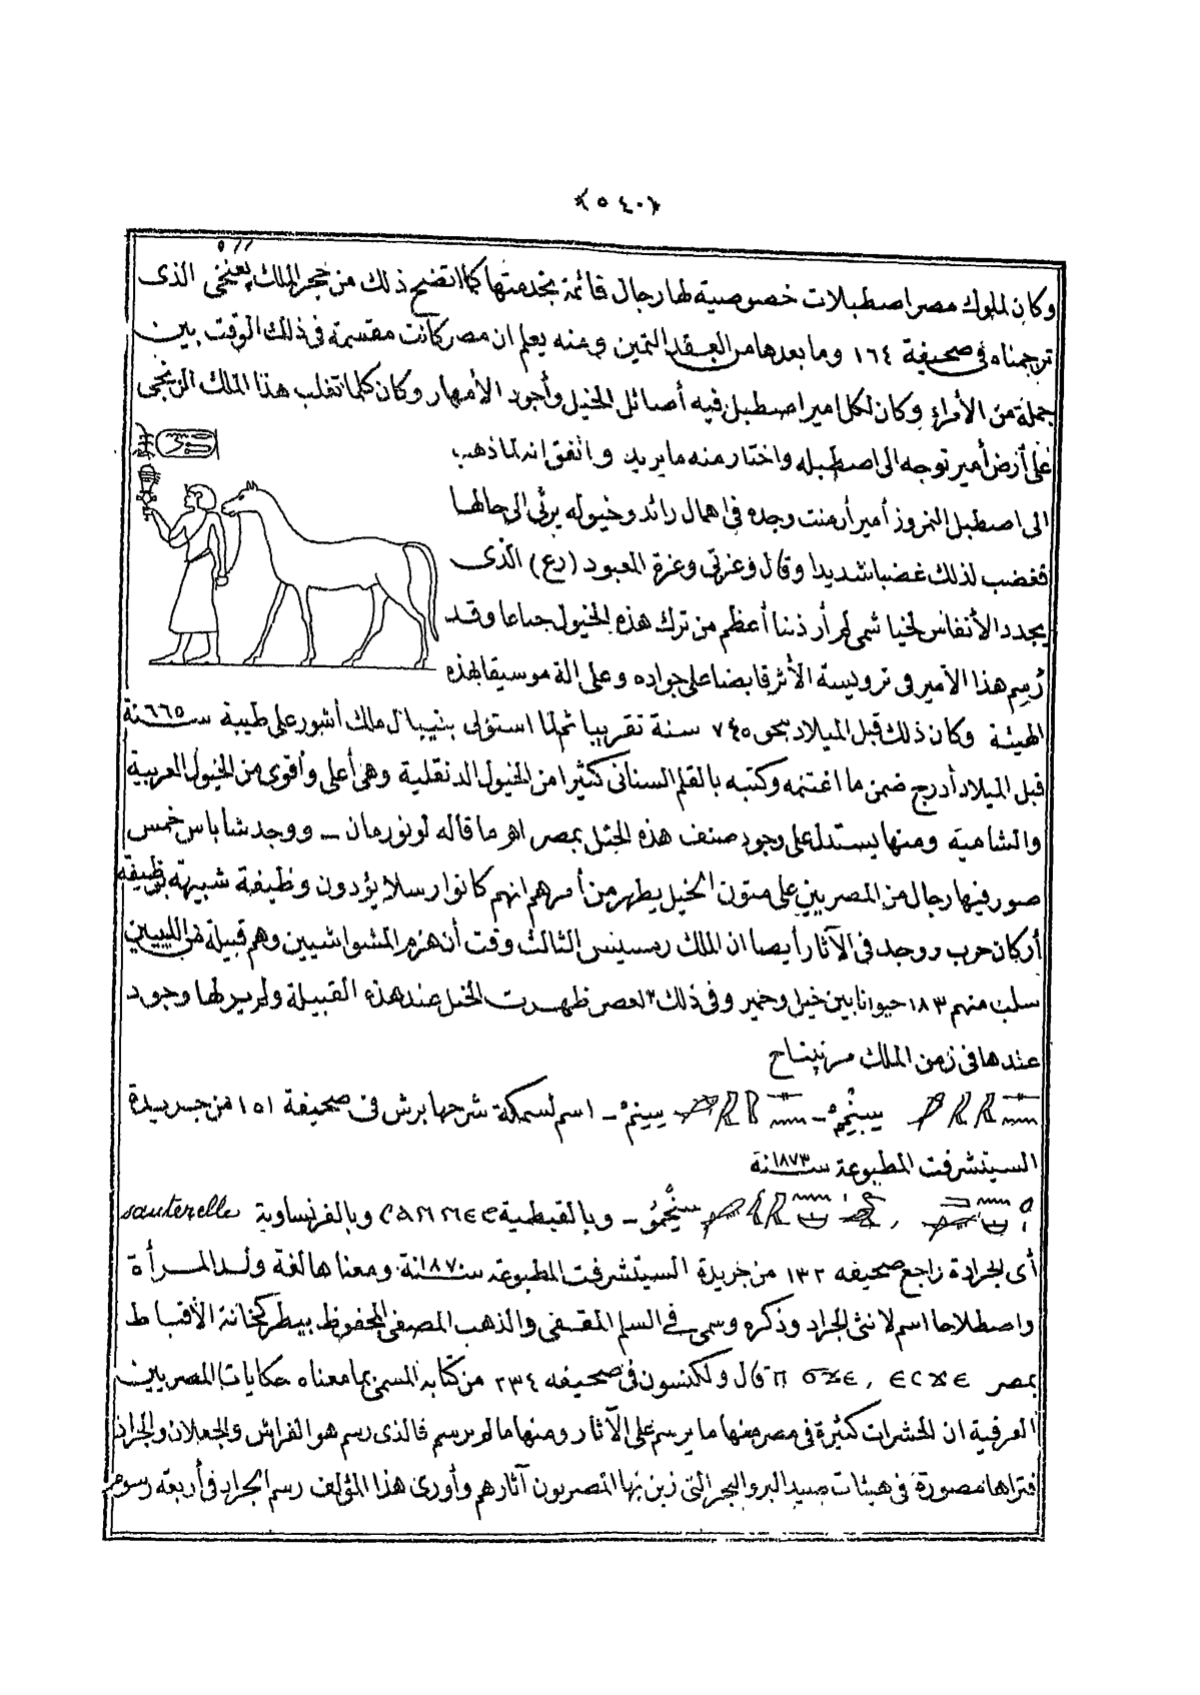 ﴿٥٤٠﴾
وكان لملوك مصر اصطبلات خصوصية لها رجال قائمة بخدمتها كما اتضح ذلك من حجر الملك پعنخى الذى
ترجمناه فى صحيفة ١٦٤ وما بعدها من العقد الثمين ومنه يعلم ان مصر كانت مقسمة فى ذلك الوقت بين
جملة من الأمراء وكان لكل امير اصطبل فيه أصائل الخيل وأجود الأمهار وكان كلما تغلب هذا الملك الزنجى
على أرض أمير توجه الى اصطبله واختار منه ما يريد واتفق انه لما ذهب
الى اصطبل النمروز أمير أرمنت وجده فى اهمال زائد وخيوله يرثى الى حالها
فغضب لذلك غضبا شديدا وقال وعزتى وعزة المعبود (رع) الذى
يجدد الأنفاس لخياشمى لم أر ذنبا أعظم من ترك هذه الخيول جياعا وقد
رُسِم هذا الأمير فى ترويسة الأثر قابضا على جواده وعلى آلة موسيقا بهذه
الهيئة وكان ذلك قبل الميلاد بنحو ٧٤٥ سنة تقريبا ثم لما استولى بنيبال ملك أشور على طيبة سنة ٦٦٥
قبل الميلاد أدرج ضمن ما اغتنمه وكتبه بالقلم السنانى كثيرا من الخيول الدنقلية وهى أعلى وأقوى من الخيول العربية
والشامية ومنها يستدل على وجود صنف هذه الخيل بمصر اهـ ما قاله لونورمان ــ ووجد شاباس خمس
صور فيها رجال من المصريين على متون الخيل يظهر من أمرهم انهم كانوا رسلا يؤدون وظيفة شبيهة بوظيفة
أركان حرب ووجد فى الآثار أيضا ان الملك رمسيس الثالث وقت أن هزم المشواشيين وهم قبيلة من الليبيين
سلب منهم ١٨٣ حيوانا بين خيل وحمير وفى ذلك العصر ظهرت الخيل عند هذه القبيلة ولم ير لها وجود
عندها فى زمن الملك مرنپتاح
ــ اسم لسمكة شرحها برش فى صحيفة ١٥١ من جريدة
السيتشرفت المطبوعة سنة ١٨٧٣
ــ وبالقبطية وبالفرنساوية sauterelle
أى الجرادة راجع صحيفه ١٣٢ من جريدة السيتشرفت المطبوعة سنة ١٨٧٠ ومعناها لغة ولد المرأة
واصطلاحا اسم لانثى الجراد وذكره وسمى فى السلم المقفى والذهب المصفى المحفوظ ببطركخانة الأقباط
بمصر ⲉⲥϫⲉ , ⲡ ϭϫⲉ قال ولكنسون فى صحيفه ٢٣٤ من كتابه المسمى بما معناه حكايات المصريين
العرفية ان الحشرات كثيرة فى مصر منها ما يرسم على الآثار ومنها ما لم يرسم فالذى رسم هو الفراش والجعلان والجراد
فتراها مصورة فى هيئات صيد البر والبحر التى زين بها المصريون آثارهم وأورى هذا المؤلف رسم الجراد فى أربعة رسوم